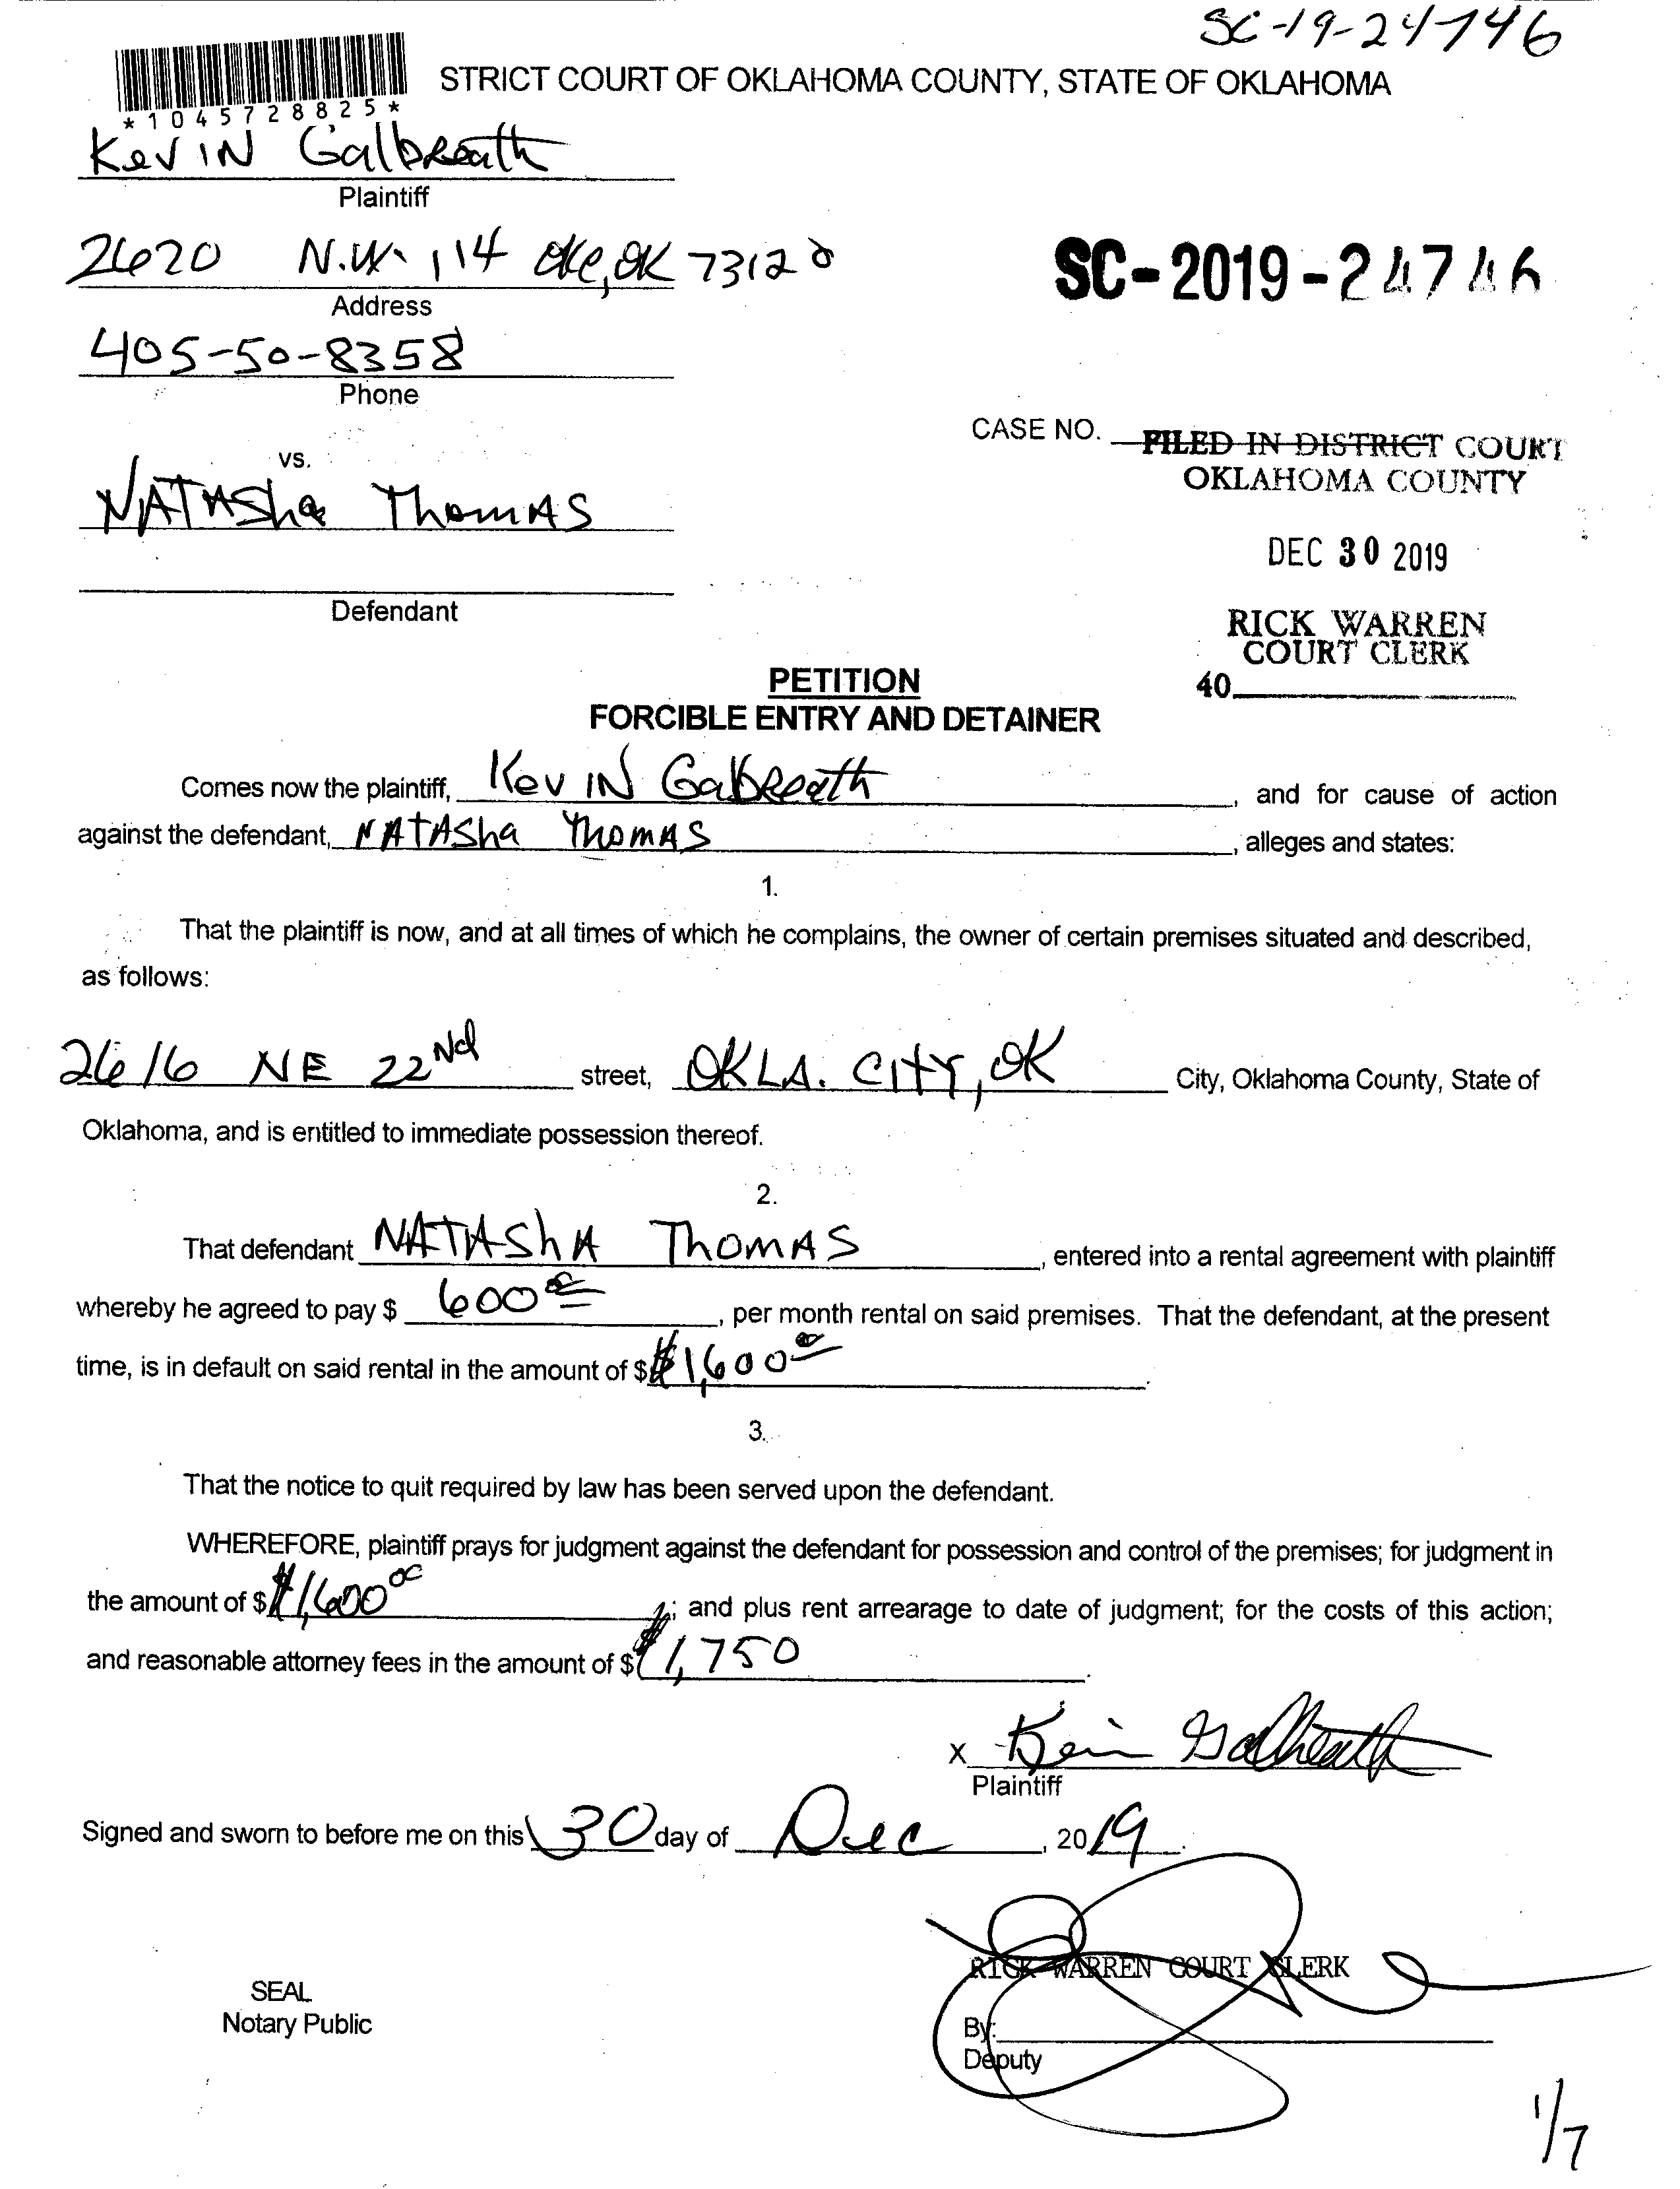 SC-19-24746
*1045728825*
STRICT COURT OF OKLAHOMA COUNTY, STATE OF OKLAHOMA
KevIN Galbreath
Plaintiff
2620 N.W. 114 OKC, OK 73120
Address
SC-2019-24746
405-50-8358
Phone
CASE NO.
FILED IN DISTRICT COURT
OKLAHOMA COUNTY
vs.
NATASha ThomAS
DEC 30 2019
Defendant
RICK WARREN
COURT CLERK
40
PETITION
FORCIBLE ENTRY AND DETAINER
Comes now the plaintiff, KevIN Galbreath, and for cause of action
against the defendant, NATASha ThomAS, alleges and states:
1.
That the plaintiff is now, and at all times of which he complains, the owner of certain premises situated and described,
as follows:
2616 NE 22Nd street, OKLA. CITY, OK City, Oklahoma County, State of
Oklahoma, and is entitled to immediate possession thereof.
2.
That defendant NATAShA ThomAS, entered into a rental agreement with plaintiff
whereby he agreed to pay $ 600 00, per month rental on said premises. That the defendant, at the present
time, is in default on said rental in the amount of $ $1,600 00.
3.
That the notice to quit required by law has been served upon the defendant.
WHEREFORE, plaintiff prays for judgment against the defendant for possession and control of the premises; for judgment in
the amount of $ $1,600 00; and plus rent arrearage to date of judgment; for the costs of this action;
and reasonable attorney fees in the amount of $ $1,750.
x Kevin Galbreath
Plaintiff
Signed and sworn to before me on this 30 day of Dec, 2019.
RICK WARREN COURT CLERK
SEAL
Notary Public
By:
Deputy
1/7